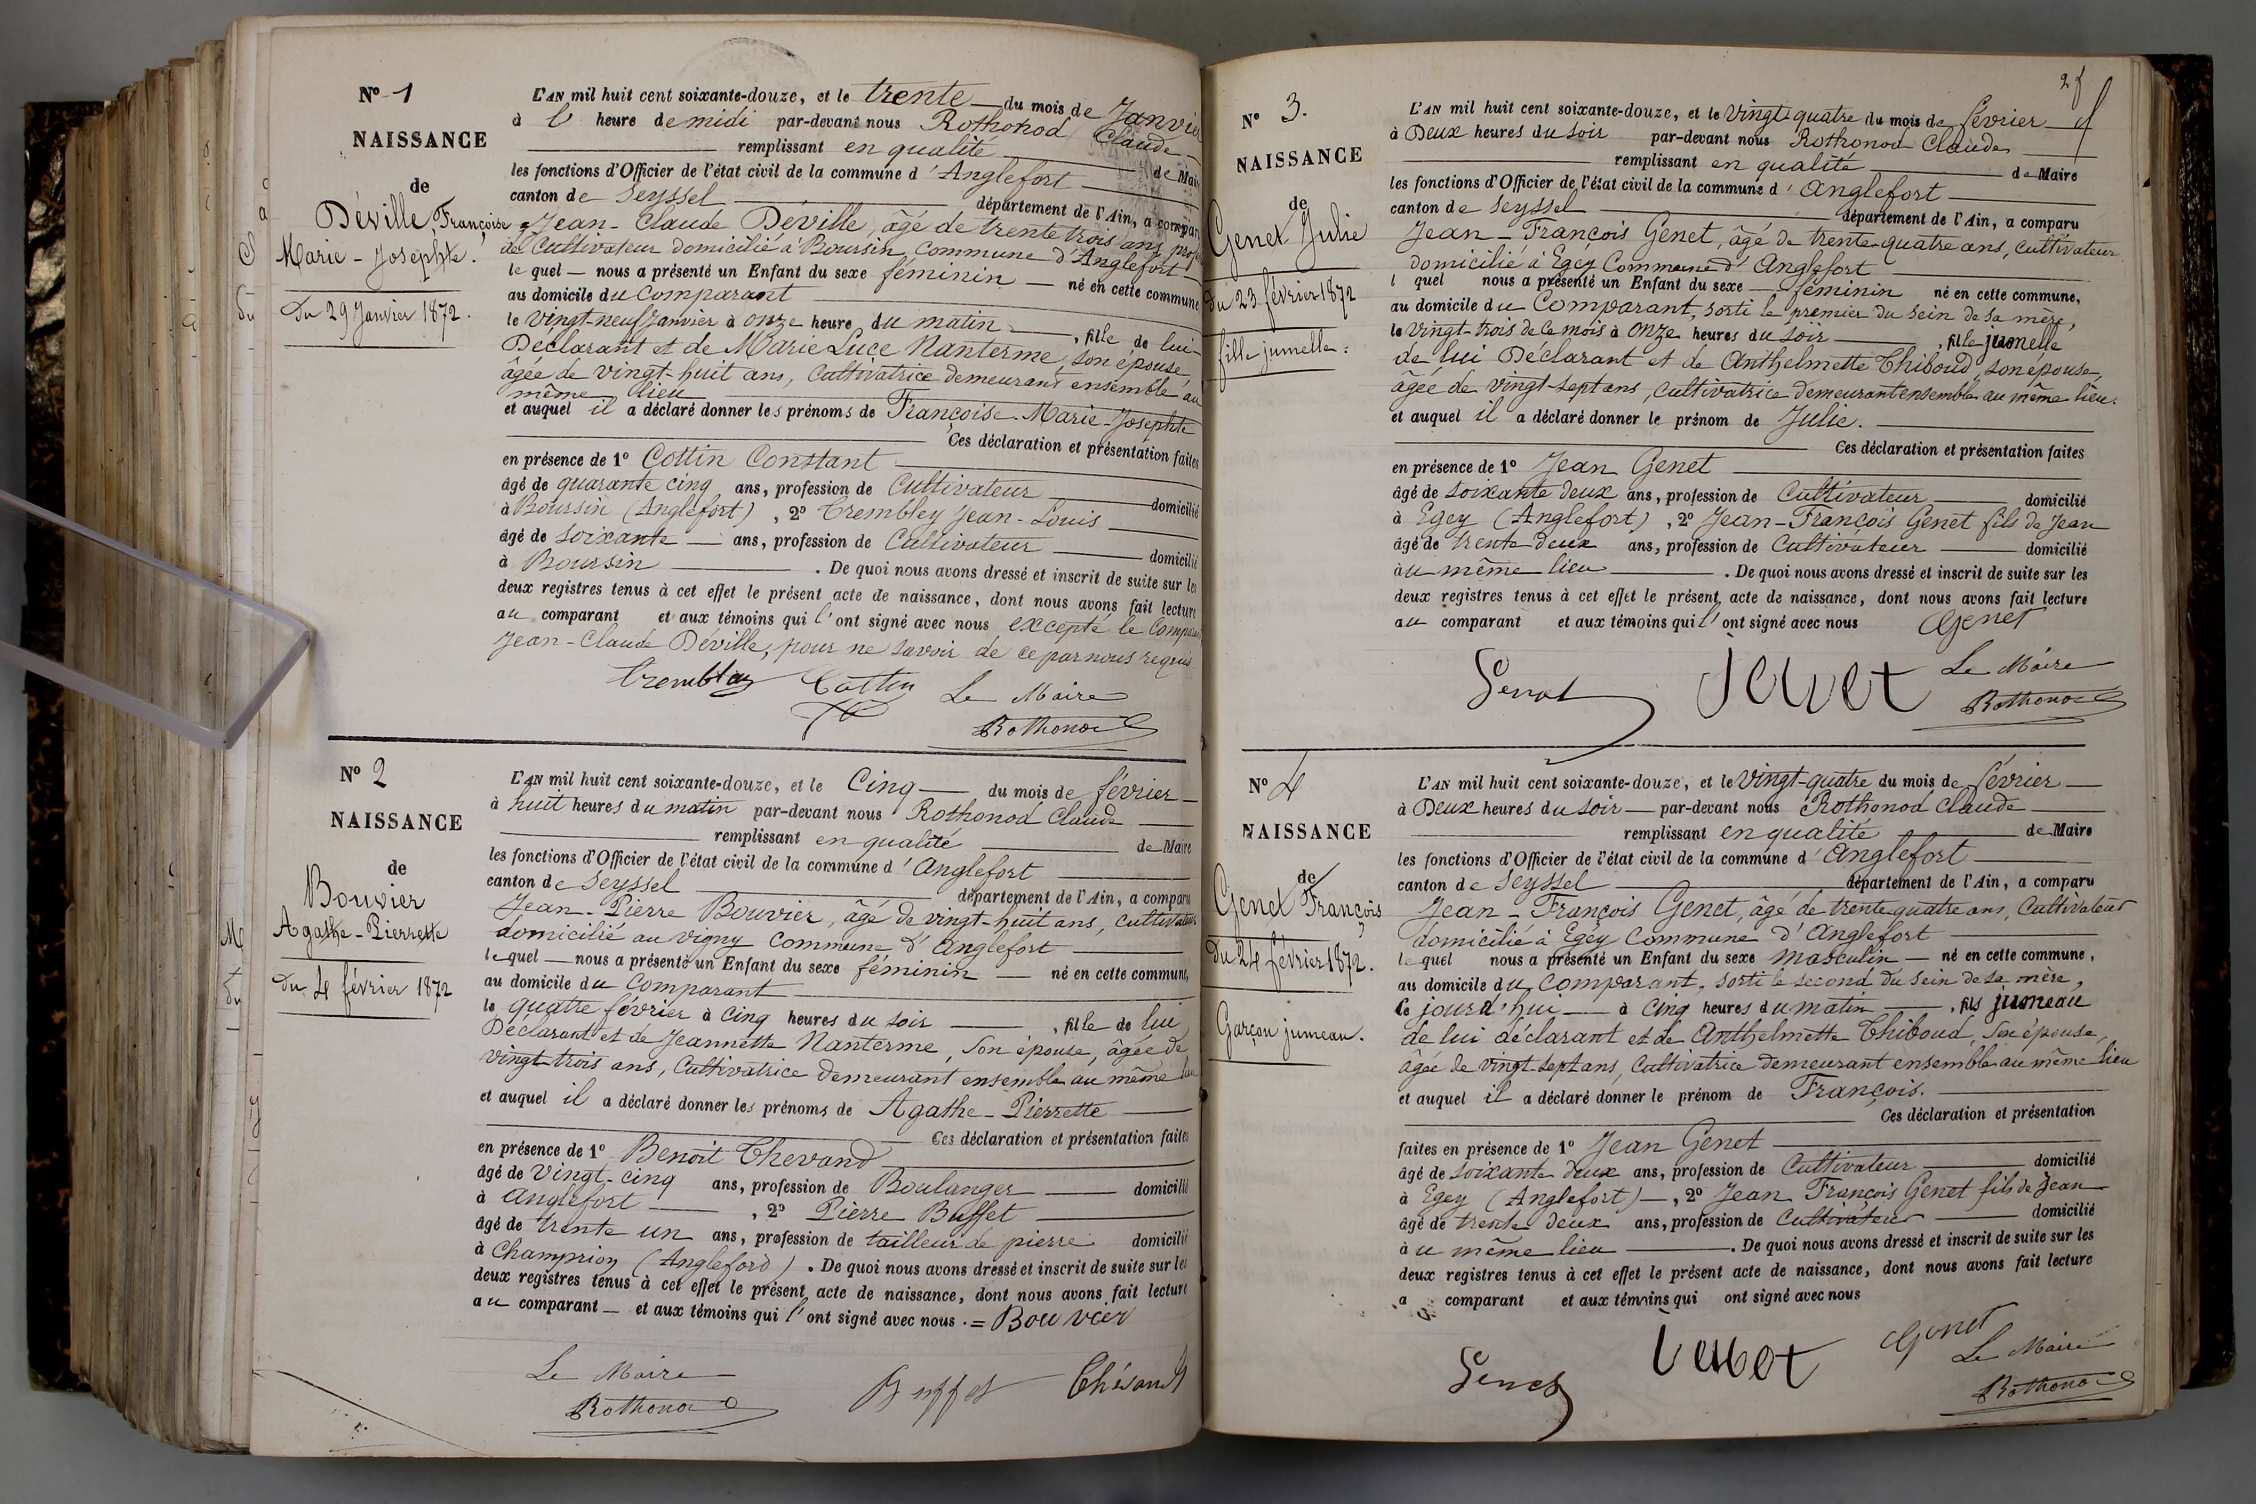 Nº 1
NAISSANCE
de
Déville Françoise
Marie-Josephte.
Du 29 Janvier 1872.
L'AN mil huit cent soixante-douze, et le trente du mois de Janvier
à 1 heure de midi par-devant nous Rothonod Claude
remplissant en qualité de Maire
les fonctions d'Officier de l'état civil de la commune d'Anglefort
canton de Seyssel département de l'Ain, a comparu
Jean-Claude Déville, âgé de trente trois ans, prof
de Cultivateur domicilié à Boursin, commune d'Anglefort
le quel nous a présenté un Enfant du sexe féminin né en cette commune
au domicile du Comparant
le vingt-neuf Janvier à onze heure du matin, fille de lui
Déclarant et de Marie Luce Nanterme, son épouse,
âgée de vingt-huit ans, Cultivatrice demeurant ensemble au
même lieu
et auquel il a déclaré donner les prénoms de Françoise-Marie-Josephte
Ces déclaration et présentation faites
en présence de 1º Cottin Constant
âgé de quarante cinq ans, profession de Cultivateur domicilié
à Boursin (Anglefort), 2º Trembley Jean-Louis
âgé de soixante ans, profession de Cultivateur domicilié
à Boursin. De quoi nous avons dressé et inscrit de suite sur les
deux registres tenus à cet effet le présent acte de naissance, dont nous avons fait lecture
au comparant et aux témoins qui l'ont signé avec nous excepté le Comparant
Jean-Claude Déville, pour ne savoir de ce par nous requis
Trembley Cottin Le Maire
Rothonod
Nº 2
NAISSANCE
de
Bouvier
Agathe-Pierrette
Du 4 février 1872
L'AN mil huit cent soixante-douze, et le Cinq du mois de février
à huit heures du matin par-devant nous Rothonod Claude
remplissant en qualité de Maire
les fonctions d'Officier de l'état civil de la commune d'Anglefort
canton de Seyssel département de l'Ain, a comparu
Jean-Pierre Bouvier, âgé de vingt-huit ans, cultivateur
domicilié au vigny Commune d'Anglefort
lequel nous a présenté un Enfant du sexe féminin né en cette commune,
au domicile du Comparant
le quatre février à cinq heures du soir, fille de lui
Déclarant et de Jeannette Nanterme, son épouse, âgée de
vingt-trois ans, Cultivatrice demeurant ensemble au même lieu
et auquel il a déclaré donner les prénoms de Agathe-Pierrette
Ces déclaration et présentation faites
en présence de 1º Benoit Thevand
âgé de vingt-cinq ans, profession de Boulanger domicilié
à Anglefort, 2º Pierre Buffet
âgé de trente un ans, profession de tailleur de pierre domicilié
à Champrion (Angleford). De quoi nous avons dressé et inscrit de suite sur les
deux registres tenus à cet effet le présent acte de naissance, dont nous avons fait lecture
au comparant et aux témoins qui l'ont signé avec nous. = Bouvier
Le Maire
Rothonod Buffet Thévand
Nº 3.
NAISSANCE
de
Genet Julie
du 23 février 1872
fille jumelle.
2f
L'AN mil huit cent soixante-douze, et le vingt-quatre du mois de février
à Deux heures du soir par-devant nous Rothonod Claude
remplissant en qualité de Maire
les fonctions d'Officier de l'état civil de la commune d'Anglefort
canton de Seyssel département de l'Ain, a comparu
Jean-François Genet, âgé de trente-quatre ans, cultivateur
domicilié à Egey Commune d'Anglefort
l quel nous a présenté un Enfant du sexe féminin né en cette commune,
au domicile du Comparant, sorti le premier du sein de sa mère,
le vingt-trois de ce mois à onze heures du soir, fille jumelle
de lui Déclarant et de Anthelmette Thiboud, son épouse,
âgée de vingt-sept ans, cultivatrice demeurant ensemble au même lieu.
et auquel il a déclaré donner le prénom de Julie.
Ces déclaration et présentation faites
en présence de 1º Jean Genet
âgé de soixante deux ans, profession de Cultivateur domicilié
à Egey (Anglefort), 2º Jean-François Genet fils de Jean
âgé de trente deux ans, profession de Cultivateur domicilié
au même lieu. De quoi nous avons dressé et inscrit de suite sur les
deux registres tenus à cet effet le présent acte de naissance, dont nous avons fait lecture
au comparant et aux témoins qui l'ont signé avec nous Genet
Genet Jenet Le Maire
Rothonod
Nº 4
NAISSANCE
de
Genet François
du 24 février 1872.
Garçon jumeau.
L'AN mil huit cent soixante-douze, et le vingt-quatre du mois de février
à Deux heures du soir par-devant nous Rothonod Claude
remplissant en qualité de Maire
les fonctions d'Officier de l'état civil de la commune d'Anglefort
canton de Seyssel département de l'Ain, a comparu
Jean-François Genet, âgé de trente-quatre ans, Cultivateur
domicilié à Egey Commune d'Anglefort
lequel nous a présenté un Enfant du sexe masculin né en cette commune,
au domicile du Comparant, sorti le second du sein de sa mère,
ce jourd'hui à cinq heures du matin, fils jumeau
de lui déclarant et de Anthelmette Thiboud, son épouse,
âgée de vingt-sept ans, Cultivatrice demeurant ensemble au même lieu
et auquel il a déclaré donner le prénom de François.
Ces déclaration et présentation
faites en présence de 1º Jean Genet
âgé de soixante deux ans, profession de Cultivateur domicilié
à Egey (Anglefort), 2º Jean François Genet fils de Jean
âgé de trente deux ans, profession de Cultivateur domicilié
au même lieu. De quoi nous avons dressé et inscrit de suite sur les
deux registres tenus à cet effet le présent acte de naissance, dont nous avons fait lecture
a comparant et aux témoins qui ont signé avec nous
Genet Genet Le Maire
Rothonod